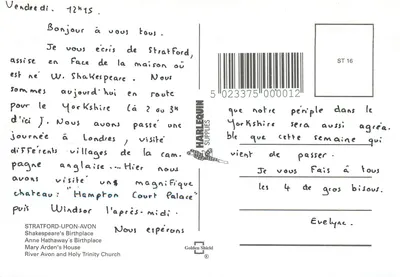 Vendredi. 12H15.
Bonjour à vous tous.
Je vous écris de Stratford,
assise en face de la maison où
est né W. Shakespeare. Nous
sommes aujourd'hui en route
pour le Yorkshire (à 2 ou 3H
d'ici). Nous avons passé une
journée à Londres, visité
différents villages de la cam-
pagne anglaise... Hier nous
avons visité un magnifique
chateau: "Hampton Court Palace"
puis Windsor l'après-midi.
Nous espérons
STRATFORD-UPON-AVON
Shakespeare's Birthplace
Anne Hathaway's Birthplace
Mary Arden's House
River Avon and Holy Trinity Church
HARLEQUIN
SUPPLIES
Golden Shield
©
5 023375 000012
ST 16
que notre périple dans le
Yorkshire sera aussi agréa-
ble que cette semaine qui
vient de passer.
Je vous fais à tous
les 4 de gros bisous.
Evelyne.